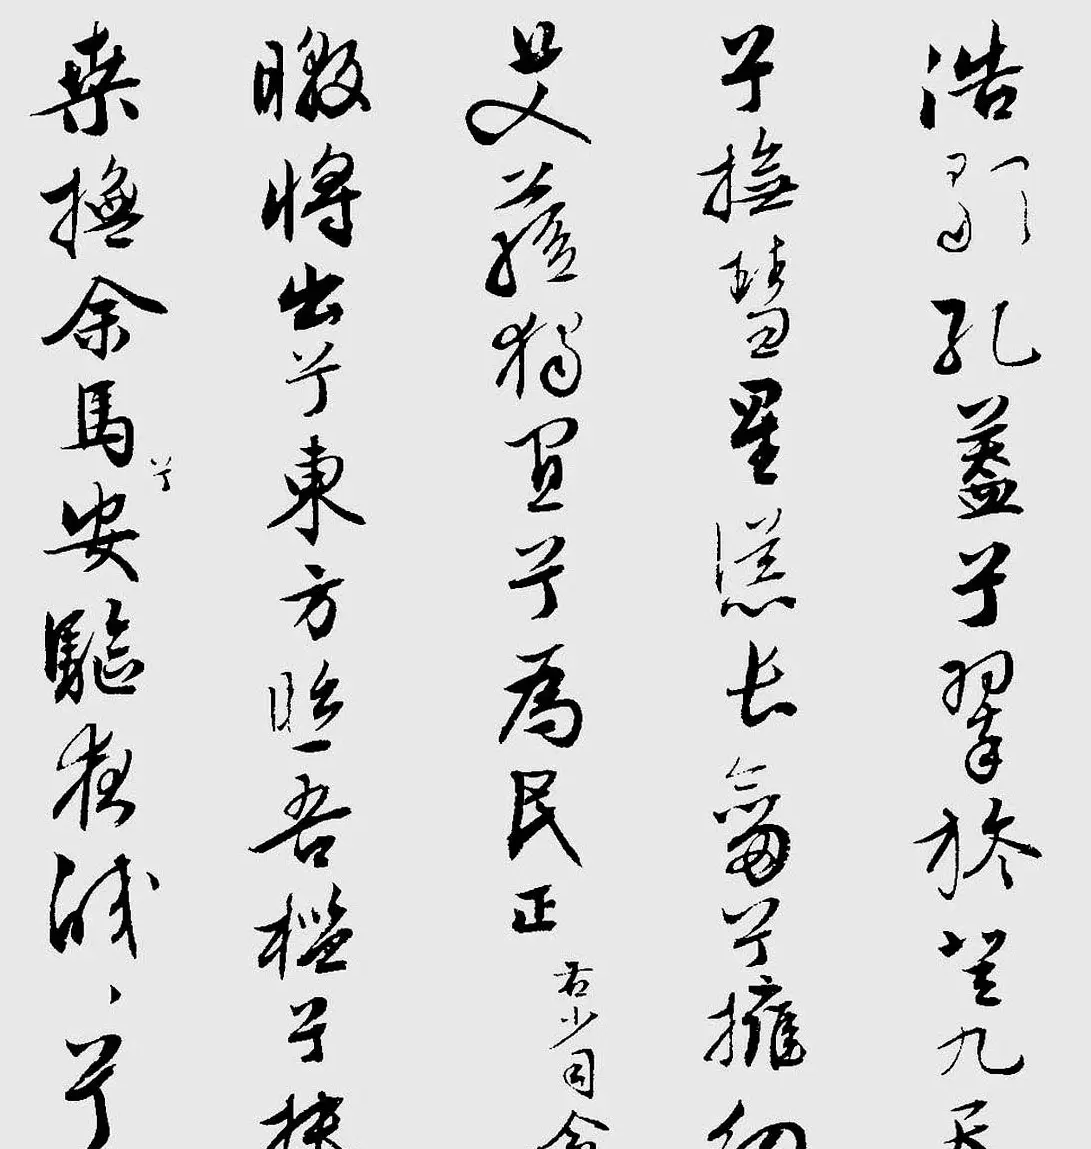 浩歌孔蓋兮翠旍登九天
兮撫彗星慫長劍兮擁幼
艾蓀獨宜兮為民正
右少司命
暾將出兮東方照吾檻兮扶
桑撫余馬兮安驅夜皎々兮